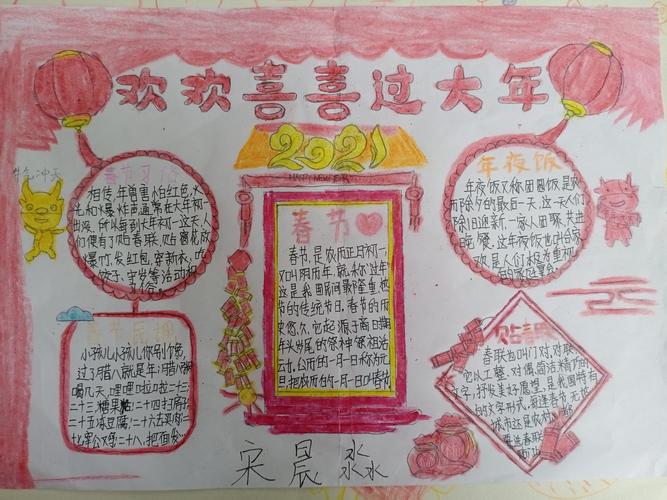 欢欢喜喜过大年
2021
HAPPY NEW YEAR
牛气冲天
春节习俗
相传,年兽害怕红色,火
光和爆炸声,通常在大年初一
出没,所以每到大年初一这天,人
们便有了贴春联、贴窗花、放
爆竹、发红包、穿新衣、吃
饺子、守岁等活动和
习俗。
春节
春节,是农历正月初一,
又叫阴历年,就称“过年”
这是我国民间最隆重、热
节的传统节日。春节的历
史悠久,它起源于商日期
年头岁尾的祭神祭祖活
云力,公历的一月一日称为元
旦,把农历的一月一日叫春节
年夜饭
年夜饭又称团圆饭是农
历除夕的最后一天,这一天人们
除旧迎新,一家人团聚,共进
晚餐,这年夜饭也叫合家
欢,是人们极为重视
的家庭宴会
春节民谣
小孩儿小孩儿你别馋,
过了腊八就是年,腊八粥
喝几天,哩哩啦啦二十三,
二十三,糖果粘,二十四扫房子,
二十五冻豆腐,二十六去买肉,二
十七宰公鸡,二十八,把面发
贴春联
春联也叫门对、对联
它以工整、对偶、简洁精巧的
文字,抒发美好愿望,是我国特有
的文学形式,每逢春节,无论
城市还是农村,
要选春联
宋晨淼